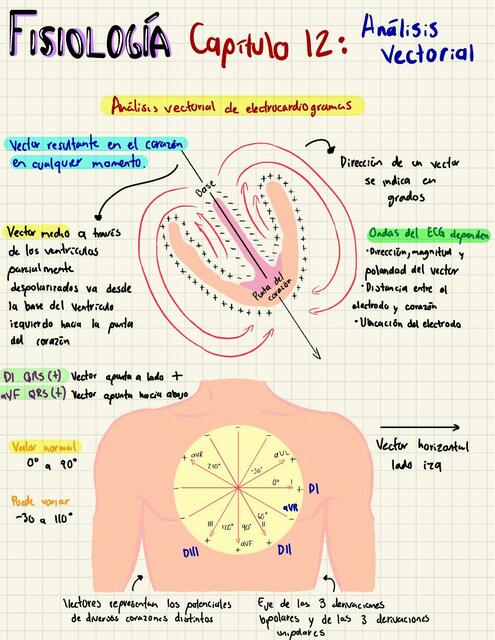 FISIOLOGÍA Capítulo 12: Análisis
Vectorial
Análisis vectorial de electrocardiogramas
Vector resultante en el corazón
en cualquier momento
Base
Punta del
corazón
Dirección de un vector
se indica en
grados
Vector medio a través
de los ventrículos
parcialmente
despolarizados va desde
la base del ventrículo
izquierdo hacia la punta
del corazón
Ondas del ECG dependen
·Dirección, magnitud y
polaridad del vector
·Distancia entre el
electrodo y corazón
·Ubicación del electrodo
DI QRS(+) Vector apunta a lado +
aVF QRS(+) Vector apunta hacia abajo
Valor normal
0° a 90°
Puede variar
-30 a 110°
aVR
210°
aUL
-30°
0°
DI
aVR
60°
II
DII
90°
aVF
120°
III
DIII
Vector horizontal
lado izq
Vectores representan los potenciales
de diversos corazones distintos
Eje de las 3 derivaciones
bipolares y de las 3 derivaciones
unipolares